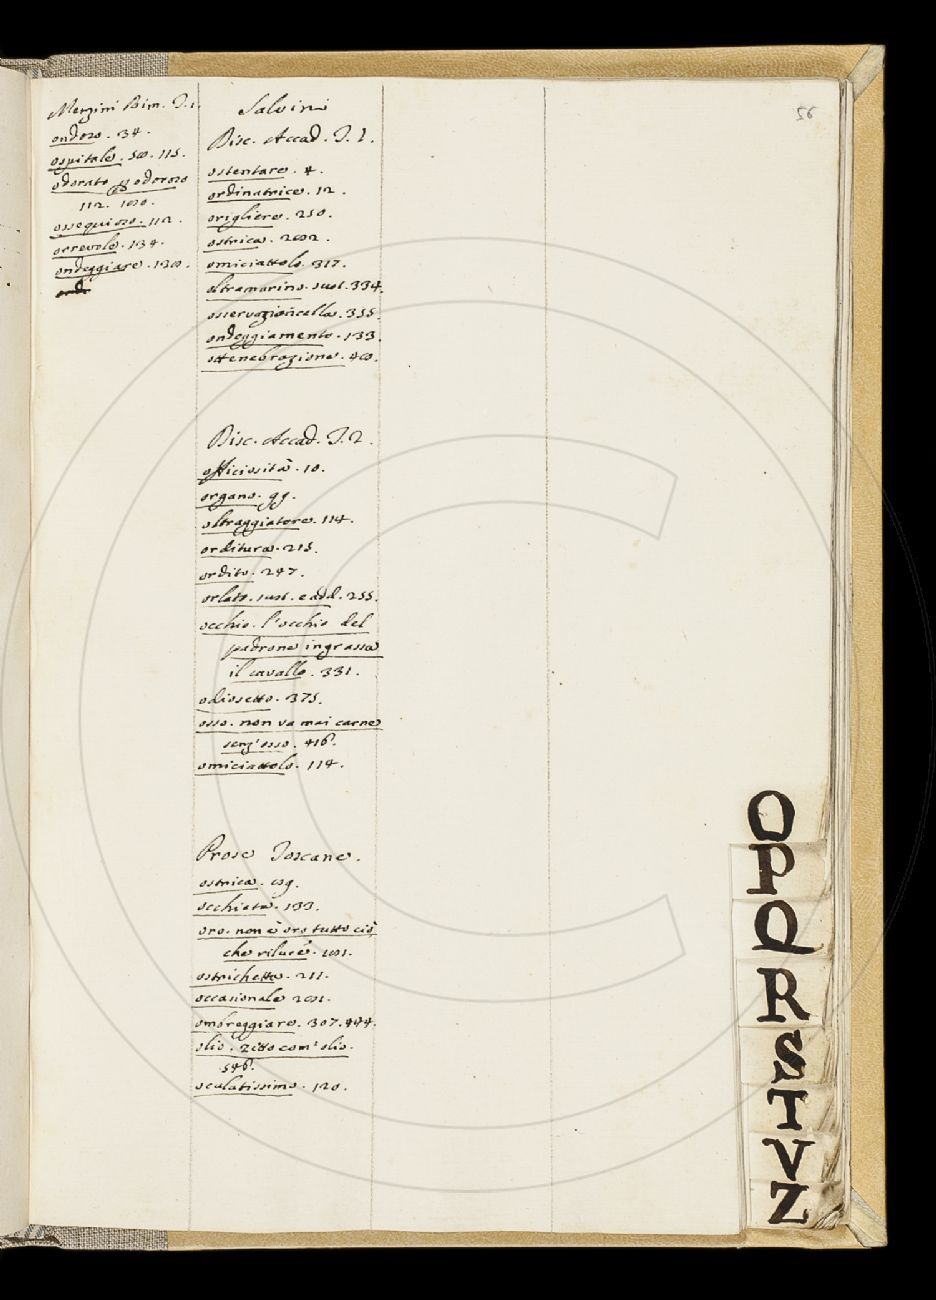 56
Menzini Rim. T. 1.
ondoso. 34.
ospitale. 50. 115.
odorato pp odoroso
112. 120.
ossequioso. 112.
orrevole. 134.
ondeggiare. 120.
Salvini
Disc. Accad. T. 1.
ostentare. 4.
ordinatrice. 12.
origliere. 250.
ostrica. 202.
omiciattolo. 317.
oltramarino. sust. 334.
osservazioncella. 355.
ondeggiamento. 133.
ottenebrazione. 40.
Disc. Accad. T. 2.
officiosità. 10.
organo. 99.
oltraggiatore. 114.
orditura. 215.
ordito. 247.
orlato. sust. e add. 255.
occhio. l'occhio del
padrone ingrassa
il cavallo. 331.
odiosetto. 375.
osso. non va mai carne
senz'osso. 416.
omiciattolo. 114.
Prose Toscane.
ostrica. 69.
occhiata. 133.
oro. non è oro tutto ciò
che riluce. 101.
ostrichetta. 211.
occasionale 201.
ombreggiare. 307. 444.
olio. zitto com' olio.
546.
oculatissimo. 120.
O
P
Q
R
S
T
V
Z